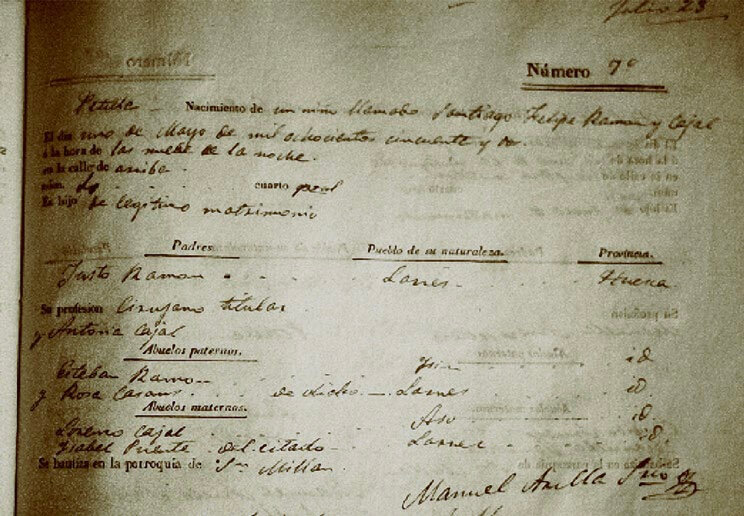 Julio 23
Número 7º
Petilla Nacimiento de un niño llamado Santiago Felipe Ramon y Cajal
El dia uno de Mayo de mil ochocientos cincuenta y dos.
á la hora de las nueve de la noche.
en la calle de arriba
núm. cuarto pral
Es hijo de legitimo matrimonio
Padres. Pueblo de su naturaleza. Provincia.
Justo Ramon Larrés Huesca
Su profesion Cirujano titular
y Antonia Cajal
Abuelos paternos.
Esteban Ramon id
y Rosa Casaus de dicho Larres id
Abuelos maternos.
Lorenzo Cajal Aso id.
Ysabel Puente del citado Larres id.
Se bautiza en la parroquia de Sn Millan
Manuel Srio